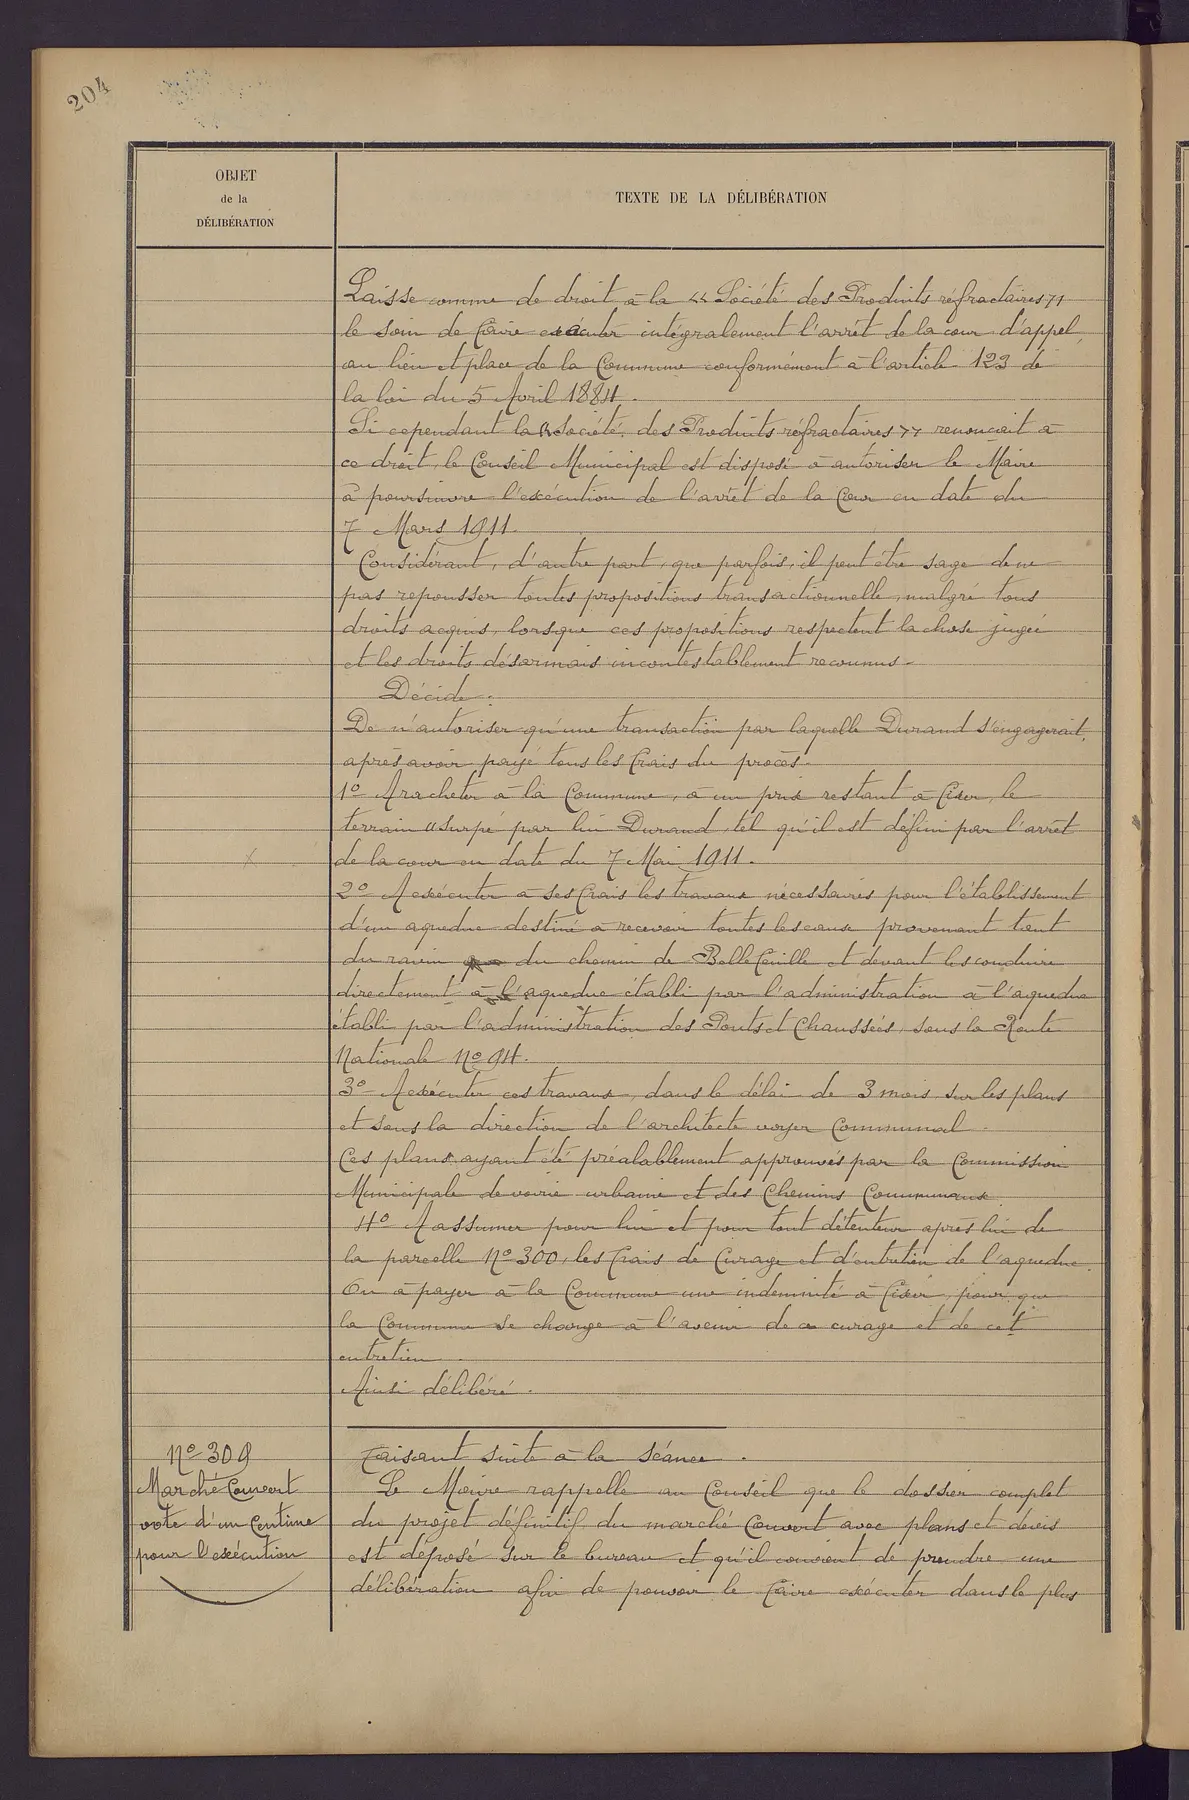 204
OBJET
de la
DÉLIBÉRATION
TEXTE DE LA DÉLIBÉRATION
Laisse comme de droit, à la « Société des Produits réfractaires »
le soin de faire exécuter intégralement l'arrêt de la cour d'appel,
au lieu et place de la Commune conformément à l'article 123 de
la loi du 5 Avril 1884.
Si cependant la « Société des Produits réfractaires » renonçait à
ce droit, le Conseil Municipal est disposé à autoriser le Maire
à poursuivre l'exécution de l'arrêt de la Cour en date du
7 Mars 1911.
Considérant, d'autre part, que parfois, il peut être sage de ne
pas repousser toutes propositions transactionnelle, malgré tous
droits acquis, lorsque ces propositions respectent la chose jugée
et les droits désormais incontestablement reconnus.
Décide :
De n'autoriser qu'une transaction par laquelle Durand s'engagerait,
après avoir payé tous les frais du procès.
1º A racheter à la Commune, à un prix restant à fixer, le
terrain usurpé par lui Durand, tel qu'il est défini par l'arrêt
de la cour en date du 7 Mai 1911.
2º A exécuter à ses frais les travaux nécessaires pour l'établissement
d'un aqueduc destiné à recevoir toutes les eaux provenant tant
du ravin que du chemin de Bellefeuille et devant les conduire
directement à l'aqueduc établi par l'administration à l'aqueduc
établi par l'administration des Ponts et Chaussées, sous la Route
Nationale Nº 94.
3º A exécuter ces travaux, dans le délai de 3 mois, sur les plans
et sous la direction de l'architecte voyer Communal.
Ces plans ayant été préalablement approuvés par la Commission
Municipale de voirie urbaine et des Chemins Communaux.
4º A assumer pour lui et pour tout détenteur après lui de
la parcelle Nº 300, les frais de Curage et d'entretien de l'aqueduc.
Ou à payer à la Commune une indemnité à fixer, pour que
la Commune se charge à l'avenir de ce curage et de cet
entretien.
Ainsi délibéré.
Nº 309
Marché Couvert
vote d'un Centime
pour l'exécution
Faisant suite à la séance.
Le Maire rappelle au Conseil que le dossier complet
du projet définitif du marché Couvert avec plans et devis
est déposé sur le bureau et qu'il convient de prendre une
délibération afin de pouvoir le faire exécuter dans le plus